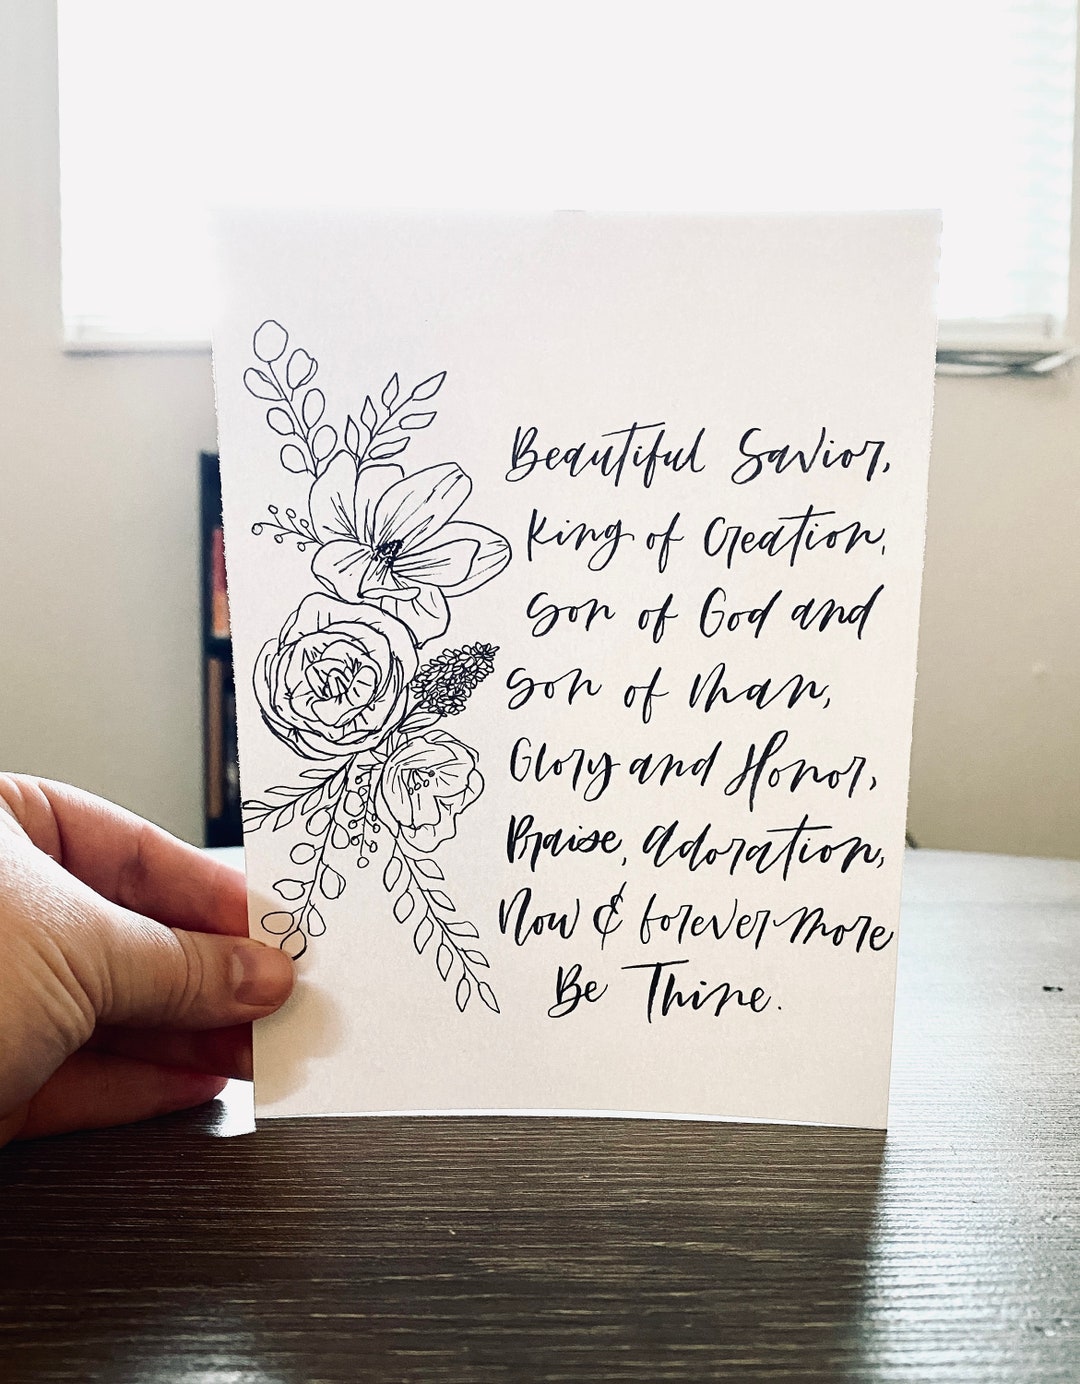 Beautiful Savior,
King of Creation,
Son of God and
Son of Man,
Glory and Honor,
Praise, Adoration,
Now & forevermore
Be Thine.